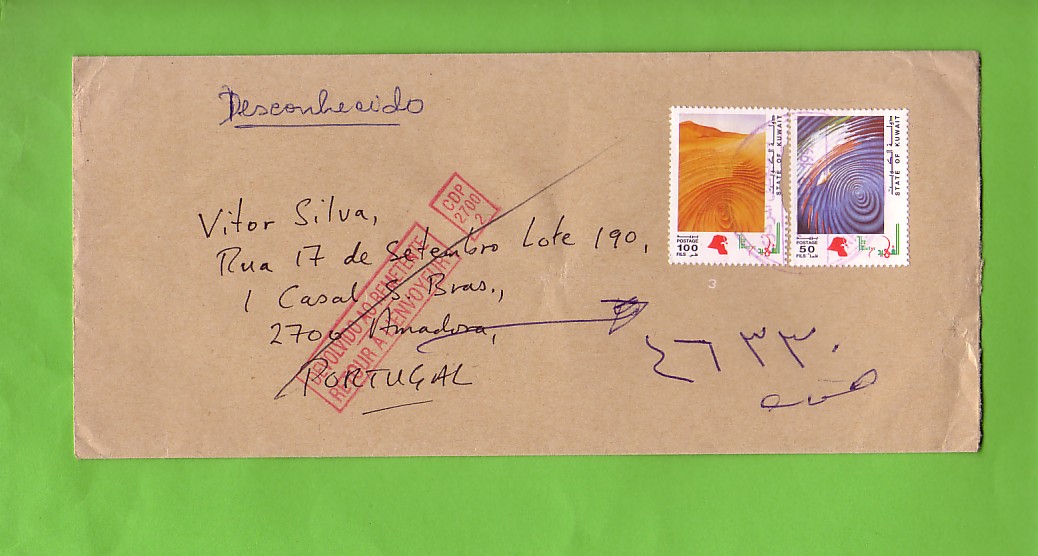 Desconhecido
دولة الكويت
STATE OF KUWAIT
POSTAGE
100
FILS
دولة الكويت
STATE OF KUWAIT
POSTAGE
50
FILS
3
CDP
2700
2
DEVOLVIDO AO REMETENTE
RETOUR A L'ENVOYEUR
Vitor Silva,
Rua 17 de Setembro Lote 190,
1 Casal S. Bras.,
2700 Amadora,
PORTUGAL
٤٦٣٣٠